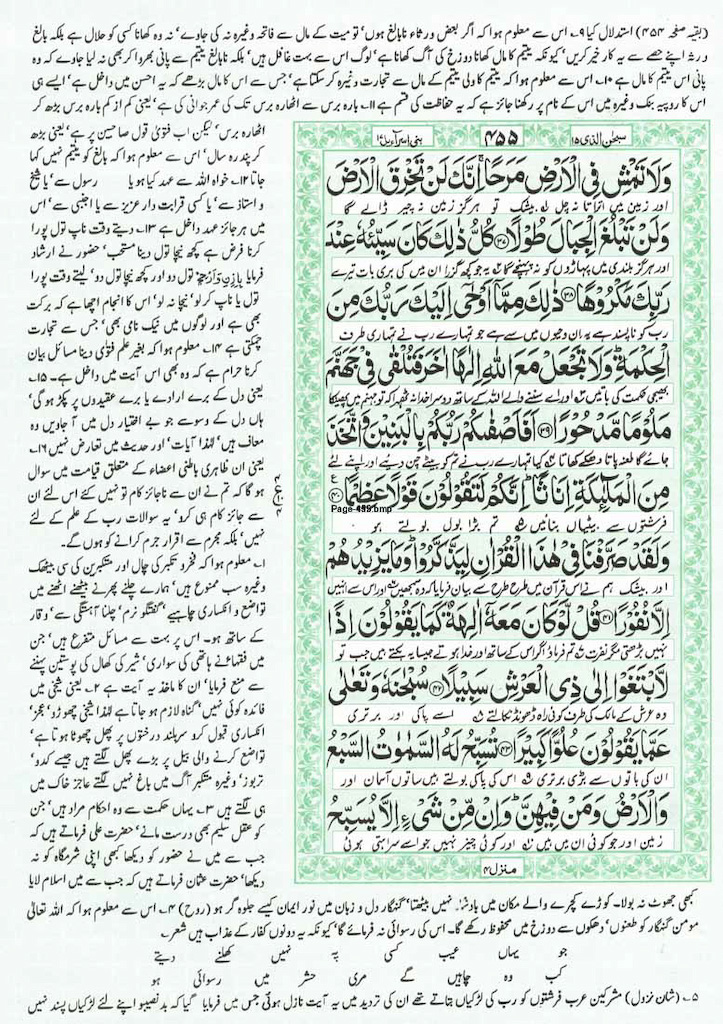 (بقیہ صفحہ ۴۵۴) استدلال کیا ۹۔ اس سے معلوم ہوا کہ اگر بعض ورثاء نابالغ ہوں' تو میت کے مال سے فاتحہ وغیرہ نہ کی جاوے' نہ وہ کھانا کسی کو حلال ہے بلکہ بالغ
ورثہ اپنے حصے سے یہ کار خیر کریں' کیونکہ یتیم کا مال کھانا دوزخ کی آگ کھانا ہے' لوگ اس سے بہت غافل ہیں' بلکہ نابالغ یتیم سے پانی بھروا کر بھی نہ لیا جاوے کہ وہ
پانی اس یتیم کا مال ہے ۱۰۔ اس سے معلوم ہوا کہ یتیم کا ولی یتیم کے مال سے تجارت وغیرہ کر سکتا ہے' جس سے اس کا مال بڑھے کہ یہ احسن میں داخل ہے' ایسے ہی
اس کا روپیہ بنک وغیرہ میں اس کے نام پر رکھنا جائز ہے کہ یہ حفاظت کی قسم ہے ۱۱۔ بارہ برس سے اٹھارہ برس تک کی عمر جوانی کی ہے' یعنی کم از کم بارہ برس بڑھ کر
اٹھارہ برس' لیکن اب فتویٰ قول صاحبین پر ہے' یعنی بڑھ
کر پندرہ سال' اس سے معلوم ہوا کہ بالغ کو یتیم نہیں کہا
جاتا ۱۲۔ خواہ اللہ سے عہد کیا ہو یا رسول سے' یا شیخ
و استاذ سے' یا کسی قرابت دار عزیز سے یا اجنبی سے' اس
میں ہر جائز عہد داخل ہے ۱۳۔ دیتے وقت ناپ تول پورا
کرنا فرض ہے کچھ نیچا تول دینا مستحب' حضور نے ارشاد
فرمایا تول دو اور کچھ نیچا تول دو' لیتے وقت پورا
تول یا ناپ کر لو' نیچا نہ لو' اس کا انجام اچھا ہے کہ برکت
بھی ہے اور لوگوں میں نیک نامی بھی' جس سے تجارت
چمکتی ہے ۱۴۔ معلوم ہوا کہ بغیر علم فتویٰ دینا مسائل بیان
کرنا حرام ہے کہ وہ بھی اس آیت میں داخل ہے۔ ۱۵۔
یعنی دل کے برے ارادے یا برے عقیدوں پر پکڑ ہو گی'
ہاں دل کے وسوسے جو بے اختیار دل میں آ جاویں وہ
معاف ہیں' لہٰذا آیات اور حدیث میں تعارض نہیں ۱۶۔
یعنی ان ظاہری باطنی اعضاء کے متعلق قیامت میں سوال
ہو گا کہ تم نے ان سے ناجائز کام تو نہیں کئے اس لئے ان
سے جائز کام ہی کرو' یہ سوالات رب کے علم کے لئے
نہیں' بلکہ مجرم سے اقرار جرم کرانے کو ہوں گے۔
۱۔ معلوم ہوا کہ فخر و تکبر کی چال اور متکبرین کی سی بیٹھک
وغیرہ سب ممنوع ہیں' ہمارے چلنے پھرنے بیٹھنے اٹھنے میں
تواضع و انکساری چاہیے' گفتگو نرم' چلنا آہستگی سے' وقار
کے ساتھ ہو۔ اس پر بہت سے مسائل متفرع ہیں' جن
میں فقہا نے ہاتھی کی سواری' شیر کی کھال کی پوستین پہننے
سے منع فرمایا' ان کا ماخذ یہ آیت ہے ۲۔ یعنی شیخی میں
فائدہ کوئی نہیں' گناہ لازم ہو جاتا ہے لہٰذا شیخی چھوڑو' عجز و
انکساری قبول کرو سربلند درختوں پر پھل چھوٹا ہوتا ہے'
تواضع کرنے والی بیل پر بڑے پھل لگتے ہیں جیسے کدو'
تربوز' وغیرہ متکبر آگ میں باغ نہیں لگتے عاجز خاک میں
ہی لگتے ہیں ۳۔ یہاں حکمت سے وہ احکام مراد ہیں' جن
کو عقل سلیم بھی درست مانے' حضرت علی فرماتے ہیں کہ
جب سے میں نے حضور کو دیکھا کبھی اپنی شرمگاہ کو نہ
دیکھا' حضرت عثمان فرماتے ہیں کہ جب سے میں اسلام لایا
سبحٰن الذی ۱۵ ۴۵۵ بنی اسرآءیل ۱۷
وَلَا تَمْشِ فِی الْاَرْضِ مَرَحًا ۚ اِنَّكَ لَنْ تَخْرِقَ الْاَرْضَ
اور زمین میں اتراتا نہ چل بیشک تو ہرگز زمین نہ چیر ڈالے گا
وَلَنْ تَبْلُغَ الْجِبَالَ طُوْلًا ﴿۳۷﴾ كُلُّ ذٰلِكَ كَانَ سَیِّئُهٗ عِنْدَ
اور ہرگز بلندی میں پہاڑوں کو نہ پہنچے گا یہ جو کچھ گزرا ان میں کی بری بات تیرے
رَبِّكَ مَكْرُوْهًا ﴿۳۸﴾ ذٰلِكَ مِمَّاۤ اَوْحٰۤی اِلَیْكَ رَبُّكَ مِنَ
رب کو ناپسند ہے یہ ان وحیوں میں سے ہے جو تمہارے رب نے تمہاری طرف
الْحِكْمَةِ ؕ وَلَا تَجْعَلْ مَعَ اللّٰهِ اِلٰهًا اٰخَرَ فَتُلْقٰی فِیْ جَهَنَّمَ
بھیجی حکمت کی باتیں اور اے سننے والے اللہ کے ساتھ دوسرا خدا نہ ٹھہرا کہ تو جہنم میں پھینکا
مَلُوْمًا مَّدْحُوْرًا ﴿۳۹﴾ اَفَاَصْفٰىكُمْ رَبُّكُمْ بِالْبَنِیْنَ وَاتَّخَذَ
جائے گا طعنہ پاتا دھکے کھاتا کیا تمہارے رب نے تم کو بیٹے چن دیئے اور اپنے لئے
مِنَ الْمَلٰٓىِٕكَةِ اِنَاثًا ؕ اِنَّكُمْ لَتَقُوْلُوْنَ قَوْلًا عَظِیْمًا ﴿۴۰﴾
فرشتوں سے بیٹیاں بنائیں تم بڑا بول بولتے ہو
Page-455.bmp
وَلَقَدْ صَرَّفْنَا فِیْ هٰذَا الْقُرْاٰنِ لِیَذَّكَّرُوْا ؕ وَمَا یَزِیْدُهُمْ
اور بیشک ہم نے اس قرآن میں طرح طرح سے بیان فرمایا کہ وہ سمجھیں اور اس سے انہیں
اِلَّا نُفُوْرًا ﴿۴۱﴾ قُلْ لَّوْ كَانَ مَعَهٗۤ اٰلِهَةٌ كَمَا یَقُوْلُوْنَ اِذًا
نہیں بڑھتی مگر نفرت تم فرماؤ اگر اس کے ساتھ اور خدا ہوتے جیسا یہ بکتے ہیں جب تو
لَّابْتَغَوْا اِلٰی ذِی الْعَرْشِ سَبِیْلًا ﴿۴۲﴾ سُبْحٰنَهٗ وَتَعٰلٰی
وہ عرش کے مالک کی طرف کوئی راہ ڈھونڈ نکالتے اسے پاکی اور برتری
عَمَّا یَقُوْلُوْنَ عُلُوًّا كَبِیْرًا ﴿۴۳﴾ تُسَبِّحُ لَهُ السَّمٰوٰتُ السَّبْعُ
ان کی باتوں سے بڑی برتری اس کی پاکی بولتے ہیں ساتوں آسمان اور
وَالْاَرْضُ وَمَنْ فِیْهِنَّ ؕ وَاِنْ مِّنْ شَیْءٍ اِلَّا یُسَبِّحُ
زمین اور جو کوئی ان میں ہیں اور کوئی چیز نہیں جو اسے سراہتی ہوئی
منزل ۴
کبھی جھوٹ نہ بولا۔ کوڑے کچرے والے مکان میں بادشاہ نہیں بیٹھتا' گنہگار دل و زبان میں نور ایمان کیسے جلوہ گر ہو (روح) ۴۔ اس سے معلوم ہوا کہ اللہ تعالٰی
مومن گنہگار کو طعنوں' دھکوں سے دوزخ میں محفوظ رکھے گا۔ اس کی رسوائی نہ فرمائے گا' کیونکہ یہ دونوں کفار کے عذاب ہیں شعر۔
جو یہاں عیب کسی پہ نہیں کھلنے دیتے
کب وہ چاہیں گے مری حشر میں رسوائی ہو
۵۔ (شان نزول) مشرکین عرب فرشتوں کو رب کی لڑکیاں بتاتے تھے ان کی تردید میں یہ آیت نازل ہوئی جس میں فرمایا گیا کہ بدنصیبو اپنے لئے لڑکیاں پسند نہیں